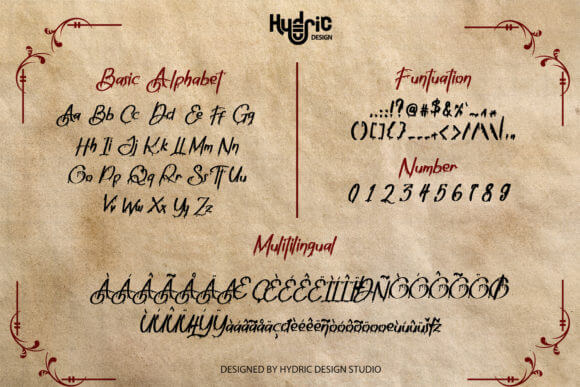 Hydric
DESIGN
Basic Alphabet
Aa Bb Cc Dd Ee Ff Gg
Hh Ii Jj Kk Ll Mm Nn
Oo Pp Qq Rr Ss Tt Uu
Vv Ww Xx Yy Zz
Funtuation
.,:;!?@#$&%
()[]{}_-+<>/\|
Number
0 1 2 3 4 5 6 7 8 9
Mulitilingual
ÀÁÂÃÄÅÆÇÈÉÊËÌÍÎÏÐÑÒÓÔÕÖØ
DESIGNED BY HYDRIC DESIGN STUDIO